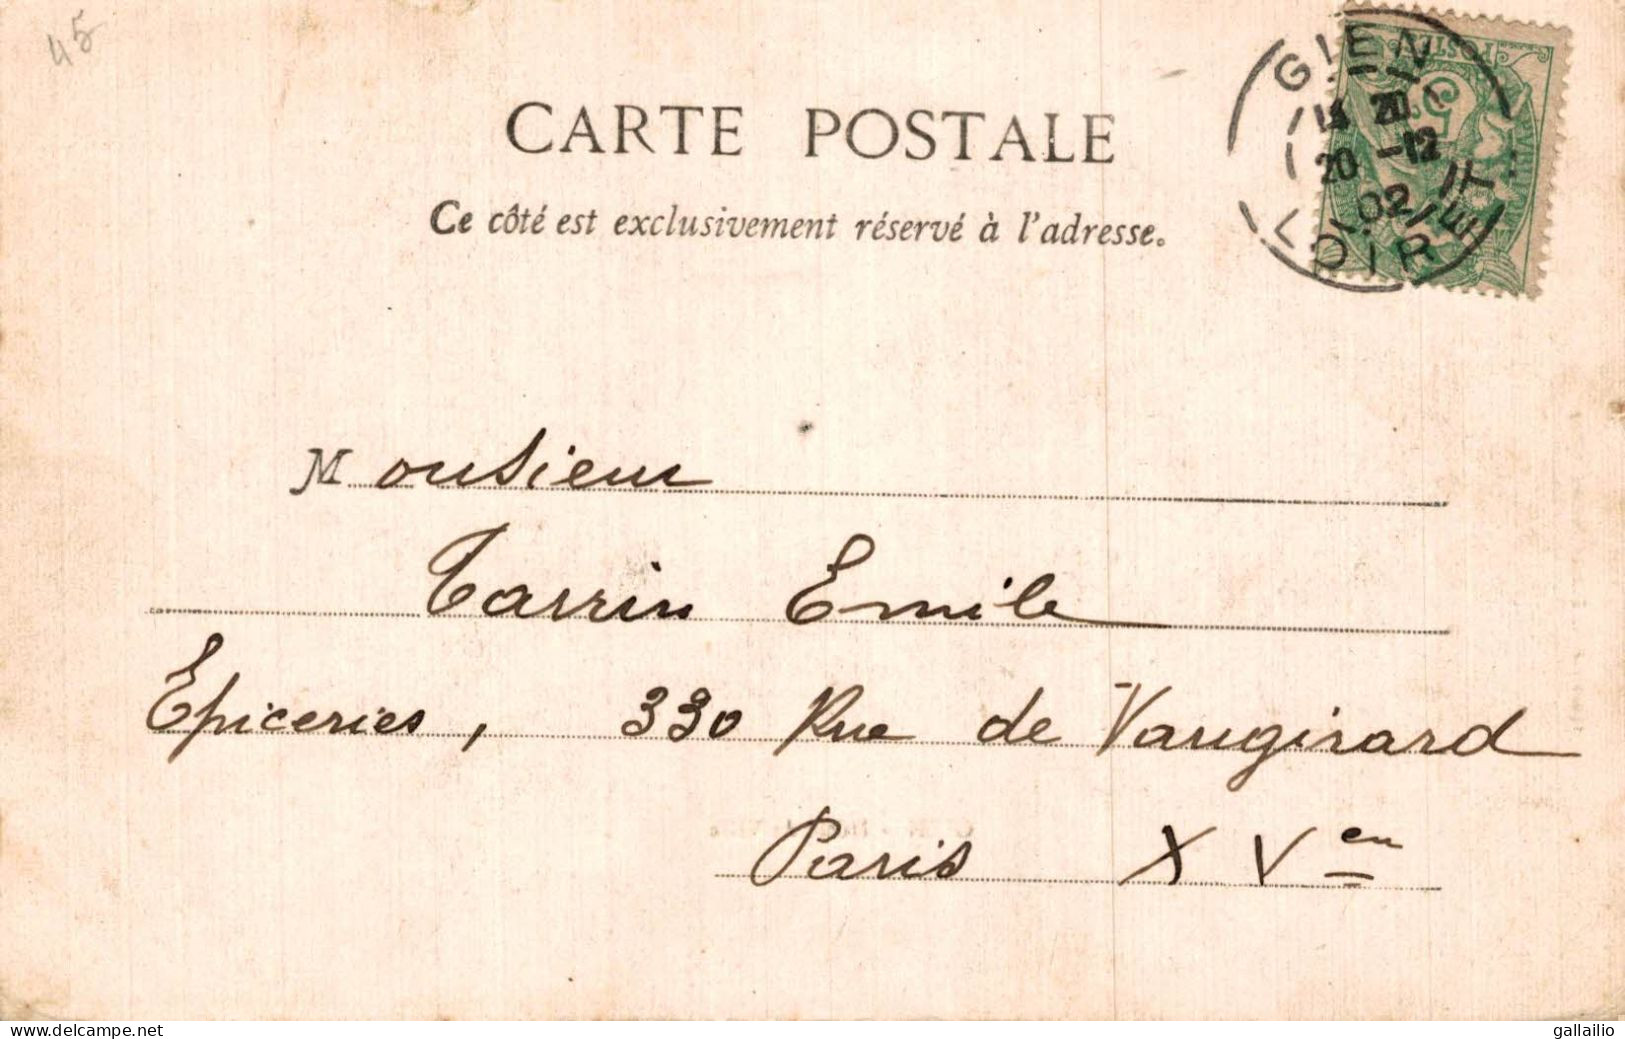 45
CARTE POSTALE
Ce côté est exclusivement réservé à l'adresse.
GIEN
20 -12
02
LOIRET
POSTES
5
Monsieur
Tarrin Emile
Epiceries, 330 Rue de Vaugirard
Paris XVen
delcampe.net
gallailio